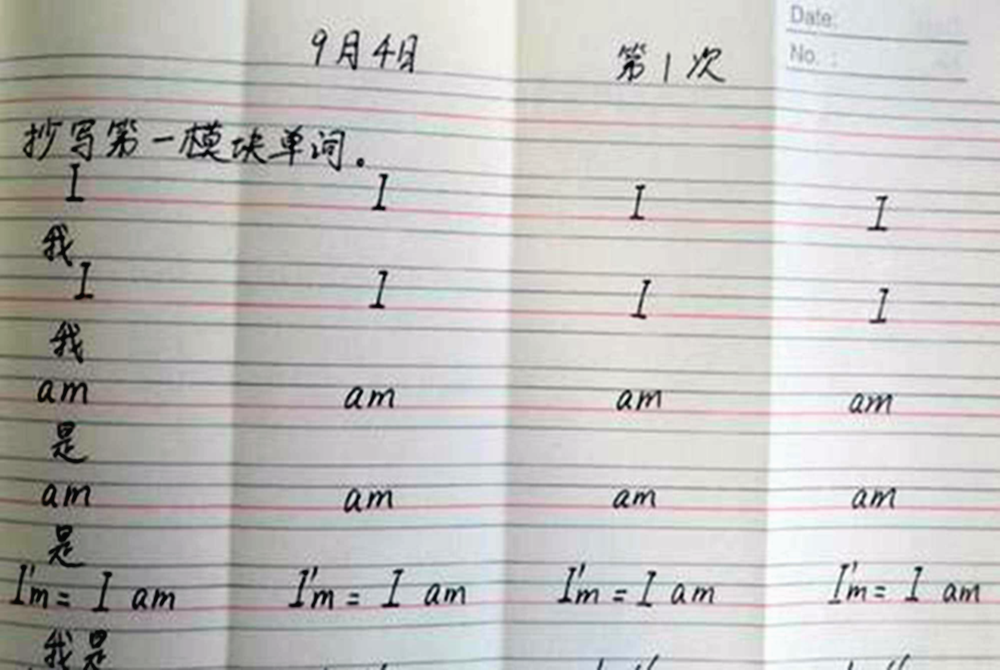 Date:
9月4日 第1次
No. :
抄写第一模块单词。
I I I I
我
I I I I
我
am am am am
是
am am am am
是
I'm = I am I'm = I am I'm = I am I'm = I am
我是